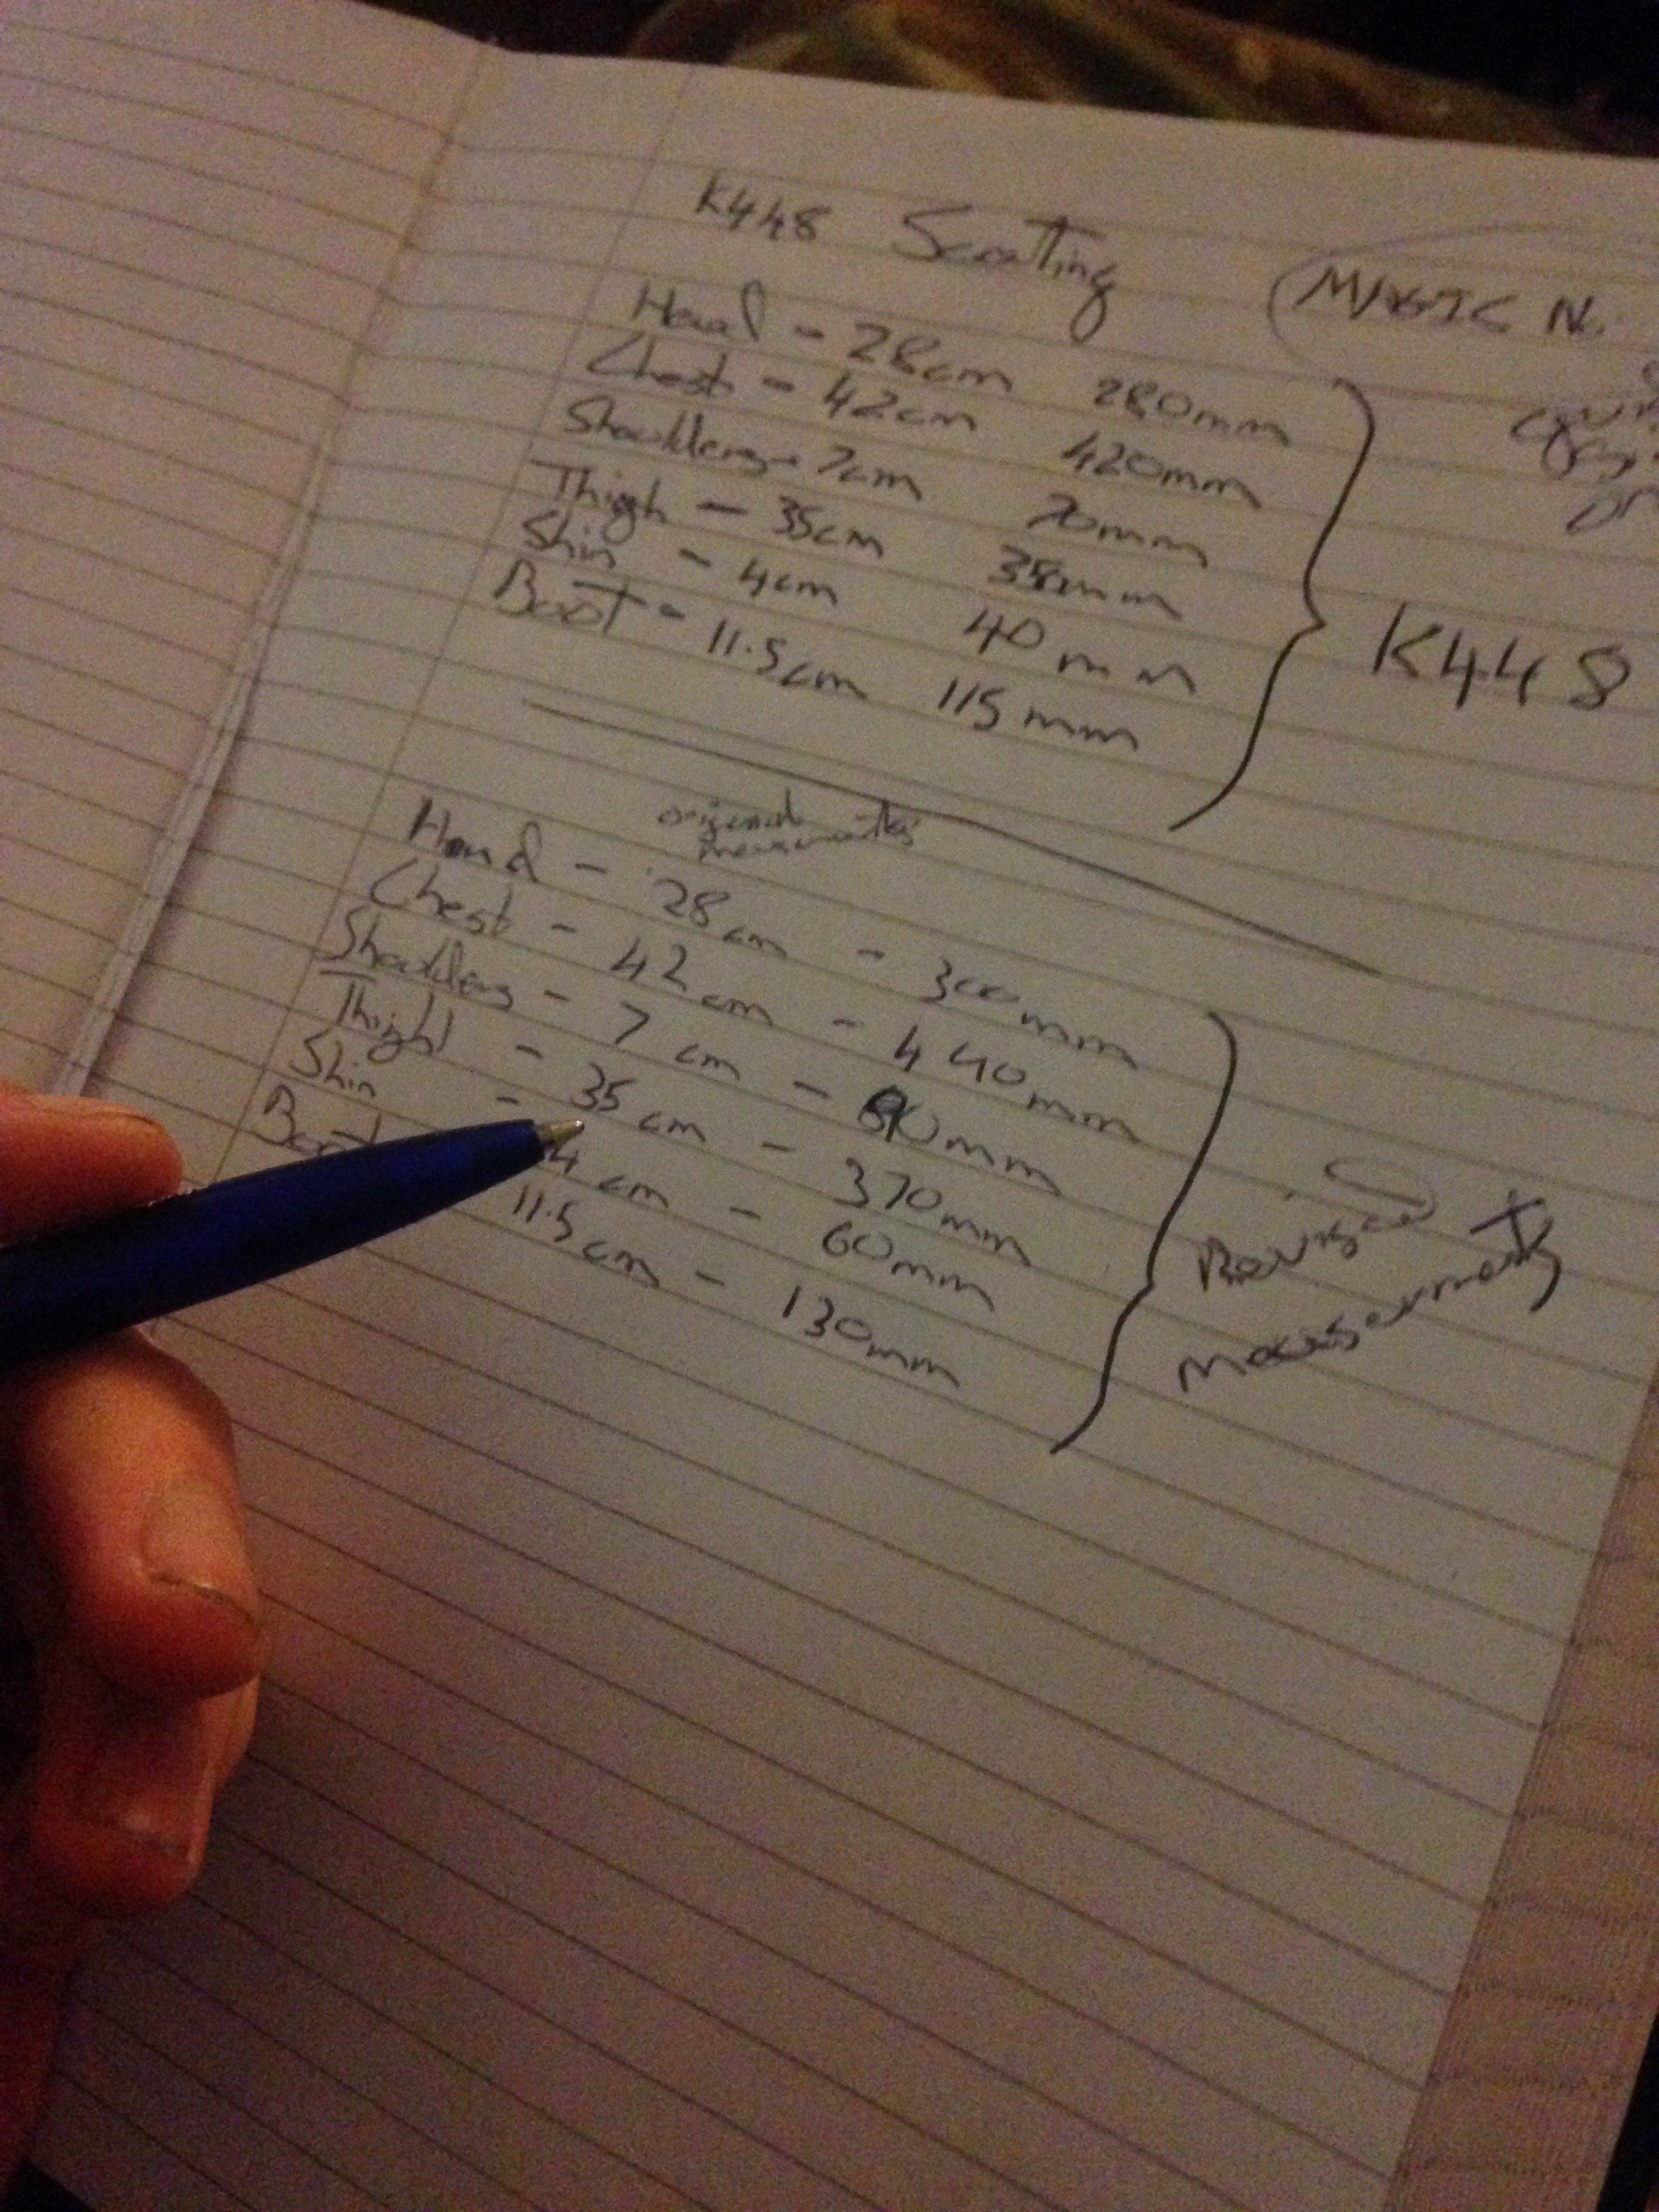 K448 Scatting
MAGIC N.
Head - 28cm 280mm
Chest - 42cm 420mm
Shoulders - 7cm 70mm
Thigh - 35cm 35mm
Shin - 4cm 40mm
Boot - 11.5cm 115mm
K448
original
Head - 28cm - 300mm
Chest - 42cm - 440mm
Shoulders - 7cm - 90mm
Thigh - 35cm - 370mm
Shin - 4cm - 60mm
Boot 11.5cm - 130mm
Revised
measurments